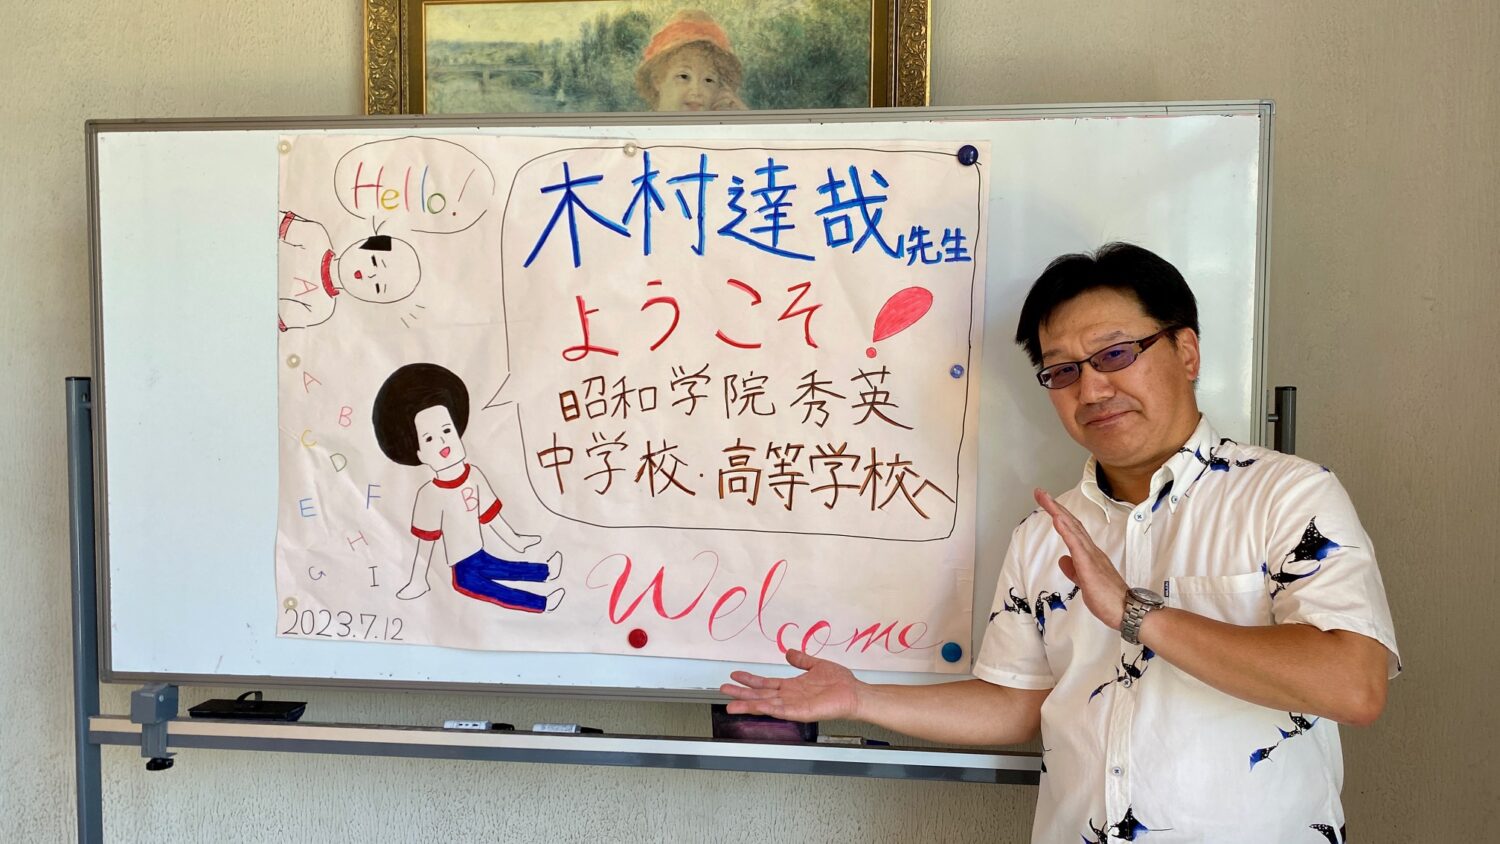 Hello!
木村達哉先生
ようこそ!
昭和学院秀英
中学校・高等学校へ
A
A
B
C
D
E
F
B
H
G
I
Welcome
2023.7.12